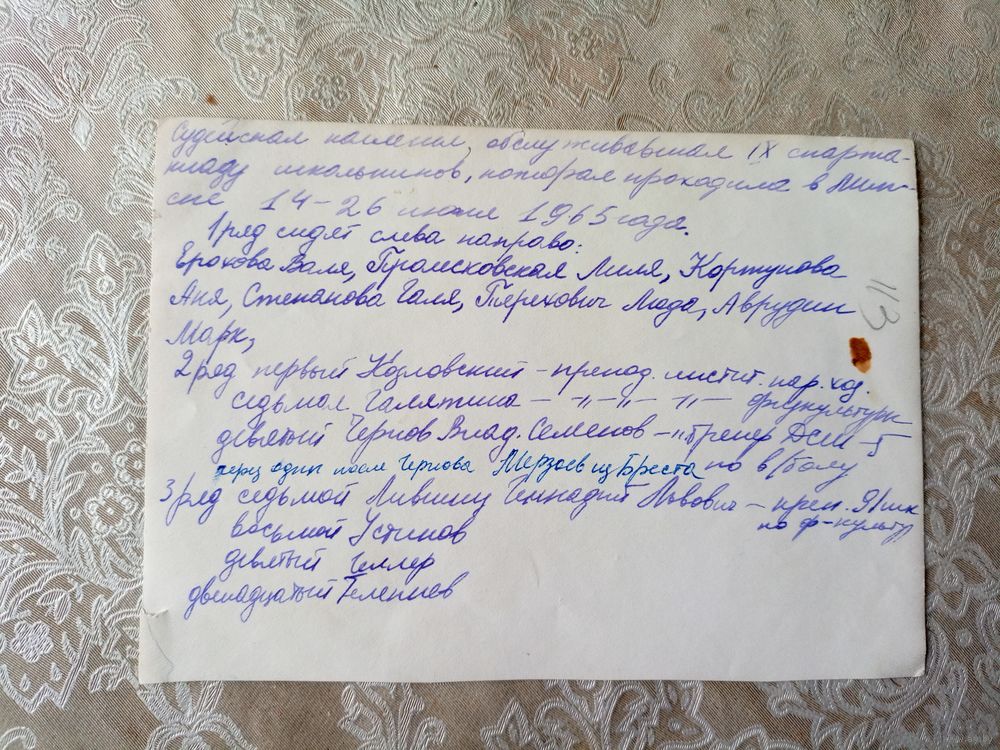 Судейская коллегия, обслуживавшая IX спарта-
киаду школьников, которая проходила в Мин-
ске 14-26 июня 1965 года.
1 ряд сидят слева направо:
Ерохова Валя, Пролесковская Лиля, Кортунова
Аня, Степанова Галя, Перехович Люда, Аврудин
Марк,
113
2 ряд первый Козловский - препод. инстит. нар. хоз.
седьмая Галяткина - -"- -"- -"- физкультуры
девятый Чернов Влад. Семенов - тренер ДСШ-5
через один после Чернова Мерзоев из Бреста по в/болу
3 ряд седьмой Лившиц Геннадий Львович - преп.
восьмой Устинов по ф-культ
девятый Геллер
двенадцатый Телепнев